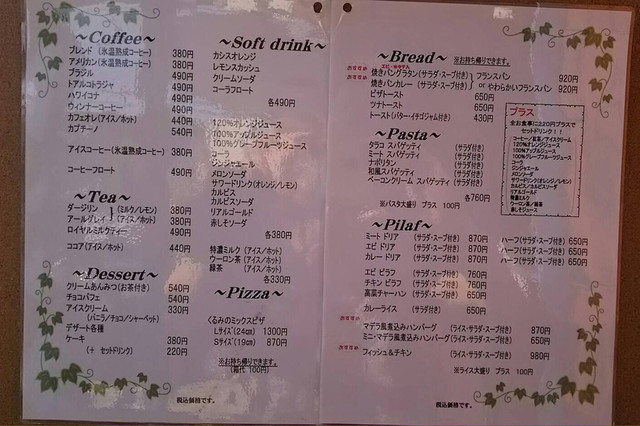 ~Coffee~
ブレンド (氷温熟成コーヒー) 380円
アメリカン (氷温熟成コーヒー) 380円
ブラジル 490円
トアルコトラジャ 490円
ハワイコナ 490円
ウィンナーコーヒー 490円
カフェオレ (アイス/ホット) 440円
カプチーノ 540円
アイスコーヒー (氷温熟成コーヒー) 380円
コーヒーフロート 490円
~Tea~
ダージリン (ミルク/レモン) 380円
アールグレイ (アイス/ホット) 380円
ロイヤルミルクティー 490円
ココア (アイス/ホット) 440円
~Dessert~
クリームあんみつ (お茶付き) 540円
チョコパフェ 540円
アイスクリーム 330円
(バニラ/チョコ/シャーベット)
デザート各種
ケーキ 380円
(+ セットドリンク) 220円
~Soft drink~
カシスオレンジ
レモンスカッシュ
クリームソーダ
コーラフロート
各490円
120%オレンジジュース
100%アップルジュース
100%グレープフルーツジュース
コーラ
ジンジャエール
メロンソーダ
サワードリンク(オレンジ/レモン)
カルピス
カルピスソーダ
リアルゴールド
赤しそソーダ
各380円
特濃ミルク (アイス/ホット)
ウーロン茶 (アイス/ホット)
緑茶 (アイス/ホット)
各330円
~Pizza~
くるみのミックスピザ
Lサイズ(24cm) 1300円
Sサイズ(19cm) 870円
※お持ち帰りできます。
(箱代 100円)
税込価格です。
~Bread~ ※お持ち帰りできます。
おすすめ 焼きパングラタン (サラダ・スープ付き) フランスパン 920円
おすすめ 焼きパンカレー (サラダ・スープ付き) or やわらかいフランスパン 920円
ピザトースト 650円
ツナトースト 650円
トースト (バター・イチゴジャム付き) 430円
~Pasta~
タラコ スパゲッティ (サラダ付き)
ミート スパゲッティ (サラダ付き)
ナポリタン (サラダ付き)
和風 スパゲッティ (サラダ付き)
ベーコンクリーム スパゲッティ (サラダ付き)
各760円
※パスタ大盛り プラス 100円
プラス
全お食事に220円プラスで
セットドリンク!!
コーヒー/紅茶/アイスクリーム
120%オレンジジュース
100%アップルジュース
100%グレープフルーツジュース
コーラ
ジンジャエール
メロンソーダ
サワードリンク(オレンジ/レモン)
カルピス/カルピスソーダ
リアルゴールド
特濃ミルク
ウーロン茶/緑茶
赤しそジュース
~Pilaf~
ミート ドリア (サラダ・スープ付き) 870円 ハーフ(サラダ・スープ付き) 650円
エビ ドリア (サラダ・スープ付き) 870円 ハーフ(サラダ・スープ付き) 650円
カレー ドリア (サラダ・スープ付き) 870円 ハーフ(サラダ・スープ付き) 650円
エビ ピラフ (サラダ・スープ付き) 760円
チキン ピラフ (サラダ・スープ付き) 760円
高菜チャーハン (サラダ・スープ付き) 650円
カレーライス (サラダ・スープ付き) 650円
おすすめ マデラ風煮込みハンバーグ (ライス・サラダ・スープ付き) 870円
ミニ・マデラ風煮込みハンバーグ (ライス・サラダ・スープ付き) 650円
おすすめ フィッシュ&チキン (ライス・サラダ・スープ付き) 980円
※ライス大盛り プラス 100円
税込価格です。